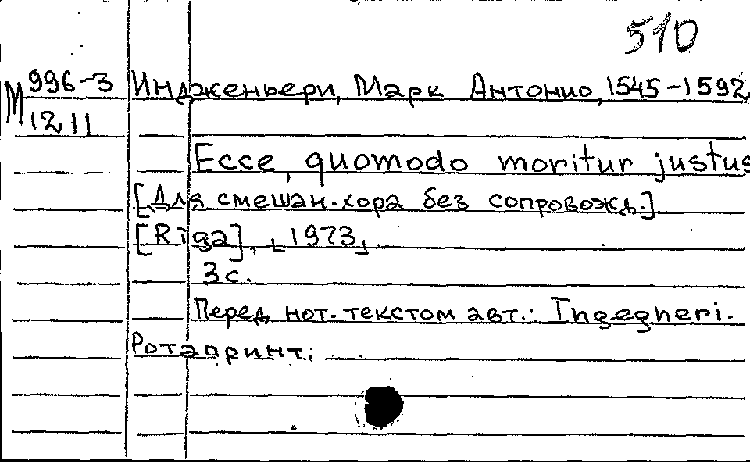 510
М 996-3 Индженьери, Марк Антонио, 1545-1592
1211
Ecce, quomodo moritur justus
[Для смешан. хора без сопровожд.]
[Rīga], [1973]
3 с.
Перед нот. текстом авт.: Ingegneri.
Ротапринт.